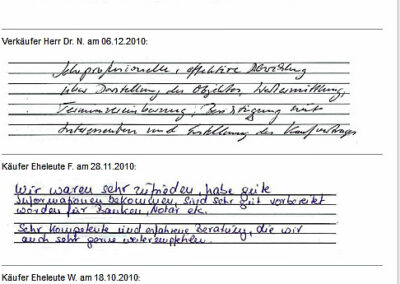 Verkäufer Herr Dr. N. am 06.12.2010:
Sehr professionelle, effektive Abwicklung
über Darstellung des Objektes, Weitervermittlung,
Terminvereinbarung, Besichtigung mit
Interessenten und Erstellung des Kaufvertrages
Käufer Eheleute F. am 28.11.2010:
Wir waren sehr zufrieden, habe gute
Informationen bekommen, sind sehr gut vorbereitet
worden für Banken, Notar etc.
Sehr kompetente und erfahrene Beratung, die wir
auch sehr gerne weiterempfehlen.
Käufer Eheleute W. am 18.10.2010: